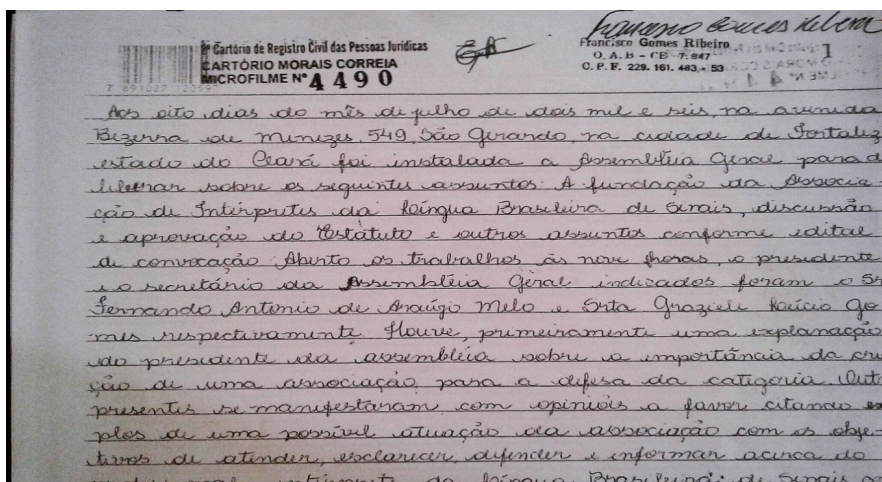 Francisco Gomes Ribeiro
º Cartório de Registro Civil das Pessoas Jurídicas
CARTÓRIO MORAIS CORREIA
MICROFILME Nº 4490
7 891027 120597
Francisco Gomes Ribeiro
O. A. B - CE 7.847
C. P. F. 229. 161. 483 - 53
1
Aos oito dias do mês de julho de dois mil e seis, na avenida
Bezerra de Menezes, 549, São Gerardo, na cidade de Fortalez
estado do Ceará foi instalada a Assembléia Geral para d
liberar sobre os seguintes assuntos: A fundação da Associa-
ção de Intérpretes da Língua Brasileira de Sinais, discussão
e aprovação do Estatuto e outros assuntos conforme edital
de convocação. Aberto os trabalhos às nove horas, o presidente
e o secretário da Assembléia Geral indicados foram o Sr
Fernando Antonio de Araújo Melo e Srta Graziele Lúcio Go
mes respectivamente. Houve, primeiramente uma explanação
do presidente da assembléia sobre a importância da cria
ção de uma associação para a defesa da categoria. Out
presentes se manifestaram com opiniões a favor citando ex
plos de uma possível atuação da associação com os obje-
tivos de atender, esclarecer, defender e informar acerca do
intérprete da língua Brasileira de Sinais